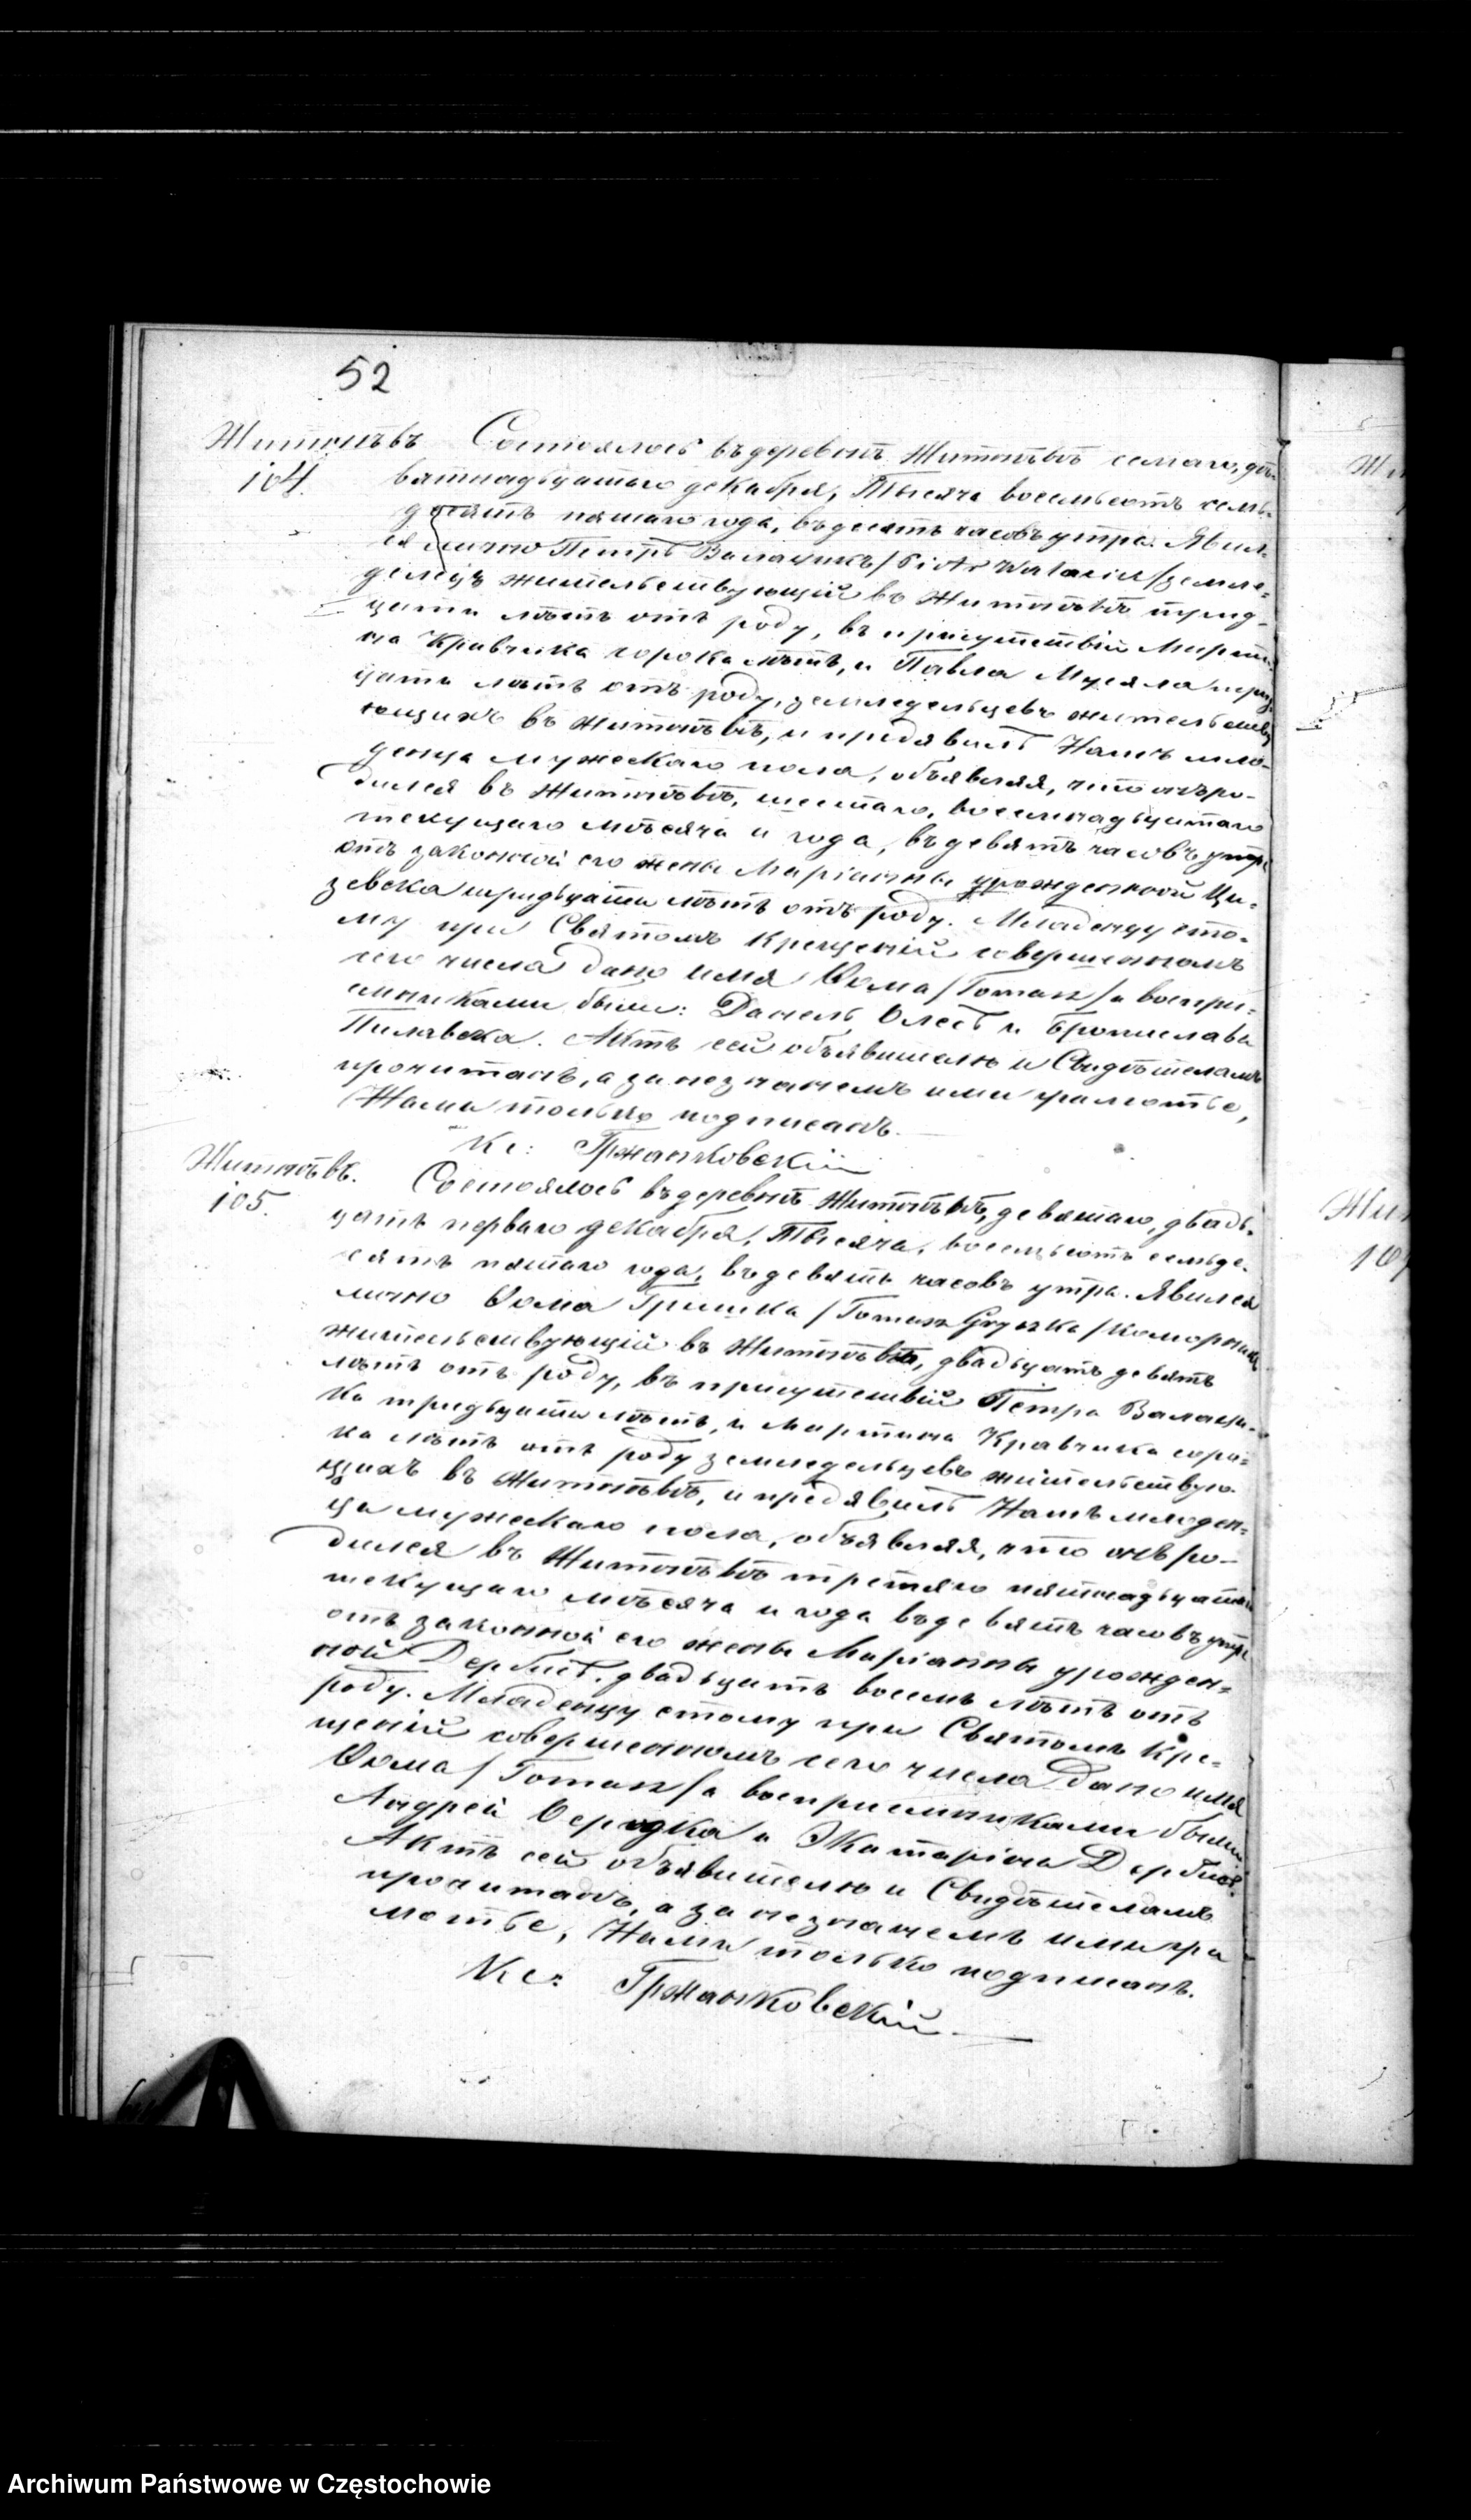 52
Житнѣвъ
104.
Состоялось въ деревнѣ Житнѣвѣ седмаго, де-
вятнадцатаго декабря, Тысяча восемьсотъ семь-
десятъ пятаго года, въ десять часовъ утра. Явил-
ся лично Петръ Валащикъ /Piotr Walasik/ земле-
делецъ жительствующій въ Житнѣвѣ трид-
цати лѣтъ отъ роду, въ присутствіи Марти-
на Кравчика сорока лѣтъ, и Павла Мусяла трид-
цати лѣтъ отъ роду, земледельцевъ жительству
ющихъ въ Житнѣвѣ, и предъявилъ Намъ мла-
денца мужескаго пола, объявляя, что онъ ро-
дился въ Житнѣвѣ, шестаго, восемнадцатаго
текущаго мѣсяча и года, въ девять часовъ утра
отъ законной его жены Маріанны урожденной
тридцати лѣтъ отъ роду. Младенцу это-
му при Святомъ крещеній совершенномъ
сего числа дано имя Ѳома /Tomasz/ а воспри-
емниками были: Данель Олесь и Бронислава
Пилявска. Актъ сей объявителю и Свидѣтелямъ
прочитанъ, а за незначемъ ими грамотъе,
Нами только подписанъ.
Кс: Гржанковскій
Житнѣвъ.
105.
Состоялось въ деревнѣ Житнѣвѣ, девятаго, двадь-
цать перваго декабря, Тысяча, восемьсотъ семьде-
сятъ пятаго года, въ девять часовъ утра. Явился
лично Ѳома Гришка /Tomasz Gryszka/ коморникъ
жительствующій въ Житнѣвѣ, двадьцать девять
лѣтъ отъ роду, въ присутствій Петра Валащи-
ка тридьцати лѣтъ, и Мартина Кравчика соро-
ка лѣтъ отъ роду земледельцевъ жительствую-
щихъ въ Житнѣвѣ, и предъявилъ Намъ младен-
ца мужескаго пола, объявляя, что онъ ро-
дился въ Житнѣвѣ третяго пятнадьцатаго
текущаго мѣсяча и года въ девять часовъ утра
отъ законной его жены Маріанны урожден-
ной Дербись, двадьцать восемь лѣтъ отъ
роду. Младенцу етому при Святомъ Кре-
щеній совершенномъ сего числа дано имя
Ѳома /Tomasz/ а восприемниками были
Андрей и Экатаріна Дербись.
Актъ сей объявителю и Свидѣтелямъ
прочитанъ, а за незначемъ ими гра
мотъе, Нами только подписанъ.
Кс: Гржанковскій
Archiwum Państwowe w Częstochowie